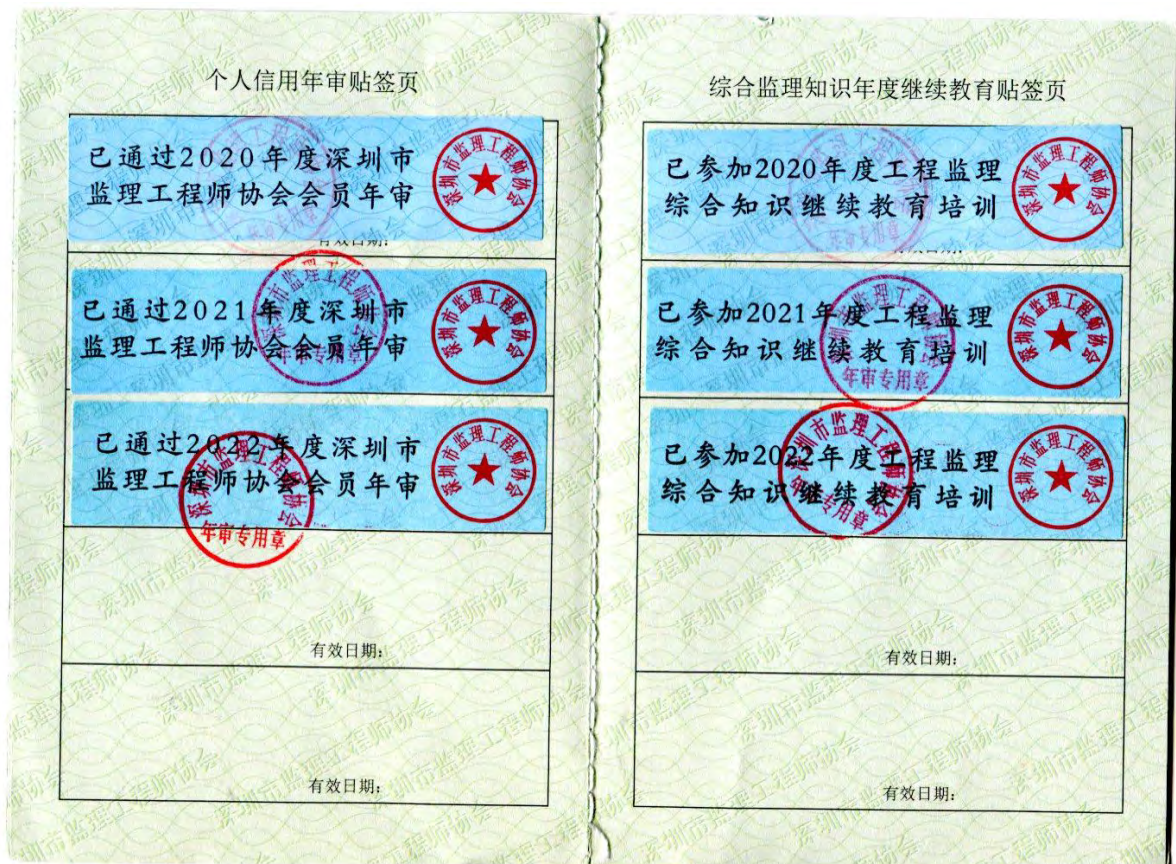 个人信用年审贴签页
已通过2020年度深圳市
监理工程师协会会员年审
深圳市监理工程师协会
年审专用章
有效日期:
已通过2021年度深圳市
监理工程师协会会员年审
深圳市监理工程师协会
深圳市监理工程师协会
年审专用章
已通过2022年度深圳市
监理工程师协会会员年审
深圳市监理工程师协会
深圳市监理工程师协会
年审专用章
有效日期:
有效日期:
综合监理知识年度继续教育贴签页
已参加2020年度工程监理
综合知识继续教育培训
深圳市监理工程师协会
年审专用章
有效日期:
已参加2021年度工程监理
综合知识继续教育培训
深圳市监理工程师协会
深圳市监理工程师协会
年审专用章
已参加2022年度工程监理
综合知识继续教育培训
深圳市监理工程师协会
深圳市监理工程师协会
年审专用章
有效日期:
有效日期: